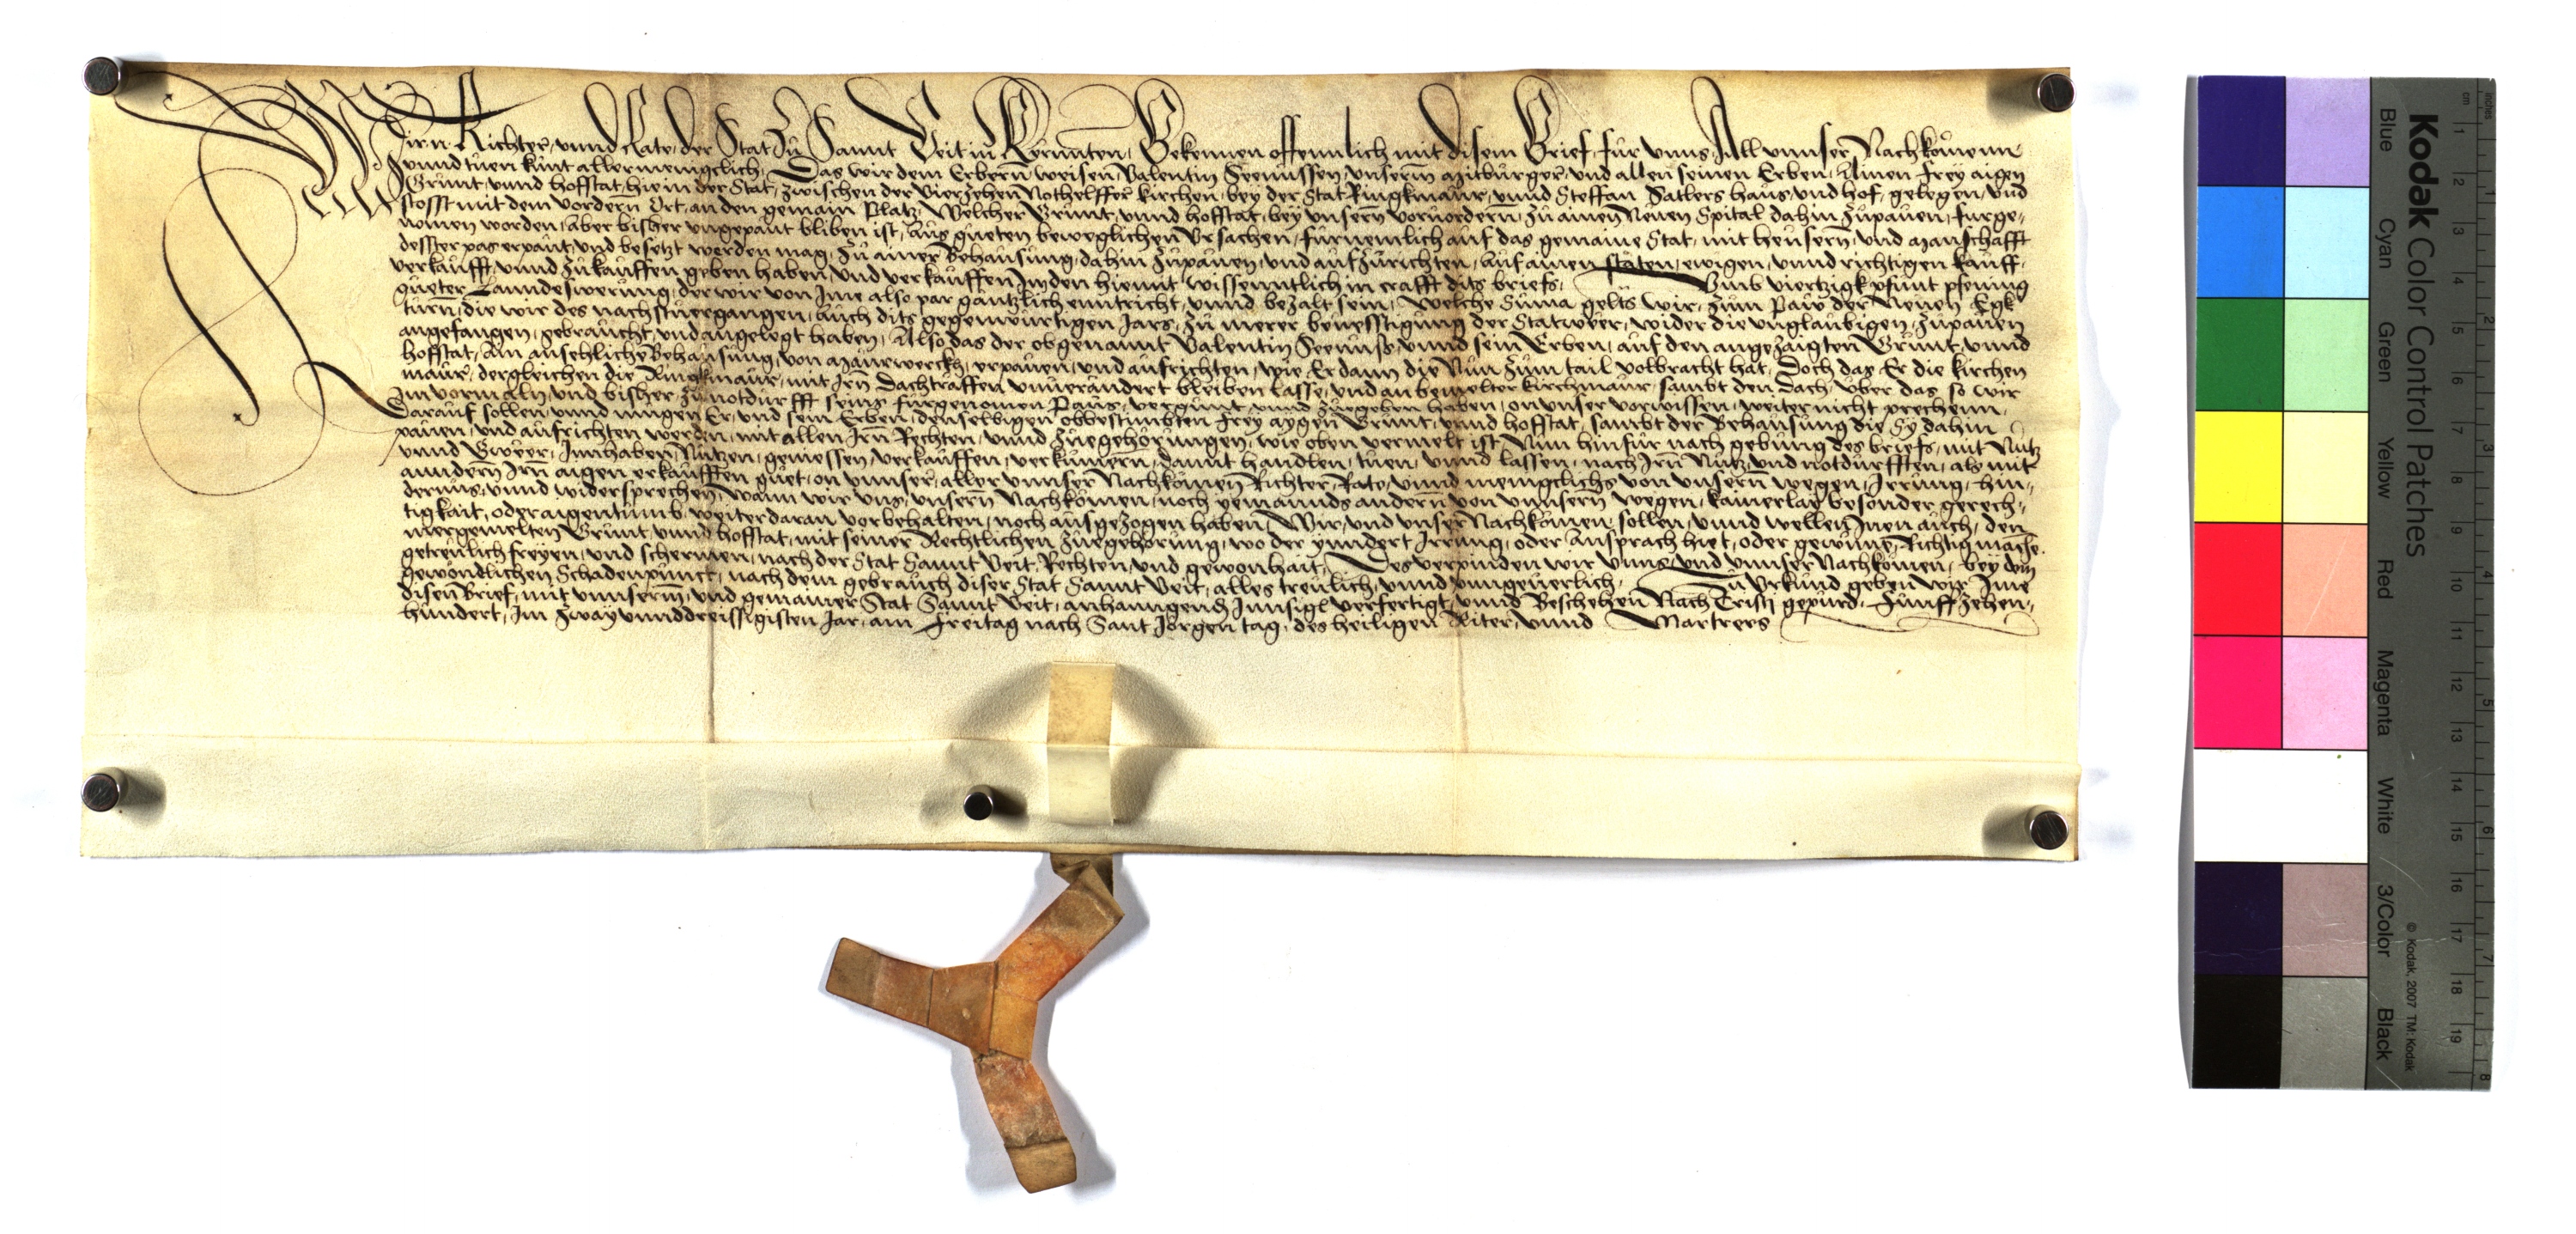 Wir n. Richter, vnnd Rate, der Stat Zu Sannt Veit in Kernnten, Bekennen offennlich mit disem Brief, für vnns, All vnnser Nachkomenn
vnnd tuen kunt allermeniglich, Das wir dem Erbern weisen Valentin Seenussen, vnserm Mitburger, vnd allen seinen Erben, Ainen frey aigen
Grunt, vnnd hofstat, hie in der Stat, zwischen der Vierzehen Nothelffer kirchen, bey der Stat Ringkmaur, vnnd Steffan Satlers haus, vnd hof, gelegen, vnd
stosst mit dem vordern Ort, an den gemain Platz, Welcher Grunt, vnnd hofstat, bey vnsern voruordern, zu ainem Neuen Spital dahin zupauen, furge-
nomen worden, Aber bisher vngepaut bliben ist, Aus gueten beweglichen Vrsachen, furnemlich auf das gemaine Stat, mit heusern, vnd Manschafft
desster pas erpaut, vnd besetzt werden mag, Zu ainer Behausung, dahin zupauen, vnd aufzurichten, Auf ainen stäten, ewigen, vnnd richtigen kauff,
verkaufft, vnnd zukauffen geben haben, vnd verkauffen Inden hiemit wissenntlich in crafft dits briefs, Vmb viertzigk pfunt pfening
gueter Lanndeswerung, der wir von Ime also par gantzlich enntricht, vnnd bezalt sein, Welche Suma gelts wir, zum Paw der Neuen Egk
turn, die wir des nachstuergangen, auch dits gegenwurtigen Jars, zu merer beuesstigung der Statweer, wider die vnglaubigen, zupauen
angefangen, gebraucht, vnd angelegt haben, Also das der obgenannt Valentin Seenuss, vnnd sein Erben, auf den angezaigten Grunt, vnnd
hofstat, Ain ansehliche Behausung, von Maurwerckh, erpauen, vnd aufrichten, wie Er dann die Nun zum tail volbracht hat, Doch das Er die kirchen
maur, dergleichen die Ringkmaur, mit Irn Dachtraffen vnuerändert bleiben lasse, vnd an bemelter kirchmaur, sambt den Dach, vber das so wir
Im vormaln, vnd bisher zu notdurfft seins furgenomen Paus, vergunt, vnnd zuegeben haben, on vnser vorwissen, weiter nicht prechenn,
Darauf sollen, vnnd mugen Er, vnd sein Erben, denselbigen obbestimbten frey aygen Grunt, vnnd hofstat, sambt der Behausung die Sy dahin
pauen, vnd aufrichten werden, mit allen Irn Rechten, vnnd Zuegehorungen, wie oben vermelt ist, Nun hinfur nach gebung des briefs, mit Nutz
vnnd Gweer, Innhaben, Nutzen, geniessen, verkauffen, verkumern, damit handlen, tuen, vnnd lassen, nach Irn Nutz, vnd notdurfften, als mit
anndern Irn aigen erkaufften guet, on vnnser, aller vnnser Nachkomen Richter, Rate, vnnd meniglichs von vnsern wegen, Irrung, hin-
dernus, vnnd widersprechen, Wann wir vns, vnsern Nachkomen, noch yemannds andern von vnnsern wegen, kainerlay besonder gerech-
tigkait, oder aigentumb, weiter daran vorbehalten, noch ausgezogen haben, Wir, vnd vnser Nachkomen, sollen, vnnd wellen Inen auch, den
mergemelten Grunt, vnnd hofstat, mit seiner Rechtlichen Zuegehorung, wo der yinndert Irrung, oder Ansprach hiet, oder gewunne, Richtig machen
getreulich freyen, vnd schermen, nach der Stat Sannt Veit, Rechten, vnd gewonhait, Des verpinden wir vnns, vnd vnnser Nachkomen, bey dem
gewondlichen Schadenpunct, nach dem gebrauch diser Stat Sannt Veit, alles treulich, vnnd vngeuerlich, Zu Vrkund geben wir Ime
disen Brief, mit vnnserm, vnd gemainer Stat Sannt Veit, anhanngend Innsigl verfertigt, vnnd Beschehen Nach Cristi gepurd, Funffzehen-
hundert, Im Zway vnnddreissigisten Jar, am Freitag nach Sant Jorgen tag, des heiligen Riter, vnnd Martrers
Kodak Color Control Patches
Blue Cyan Green Yellow Red Magenta White 3/Color Black
© Kodak, 2007 TM: Kodak
cm 1 2 3 4 5 6 7 8 9 10 11 12 13 14 15 16 17 18 19
inches 1 2 3 4 5 6 7 8